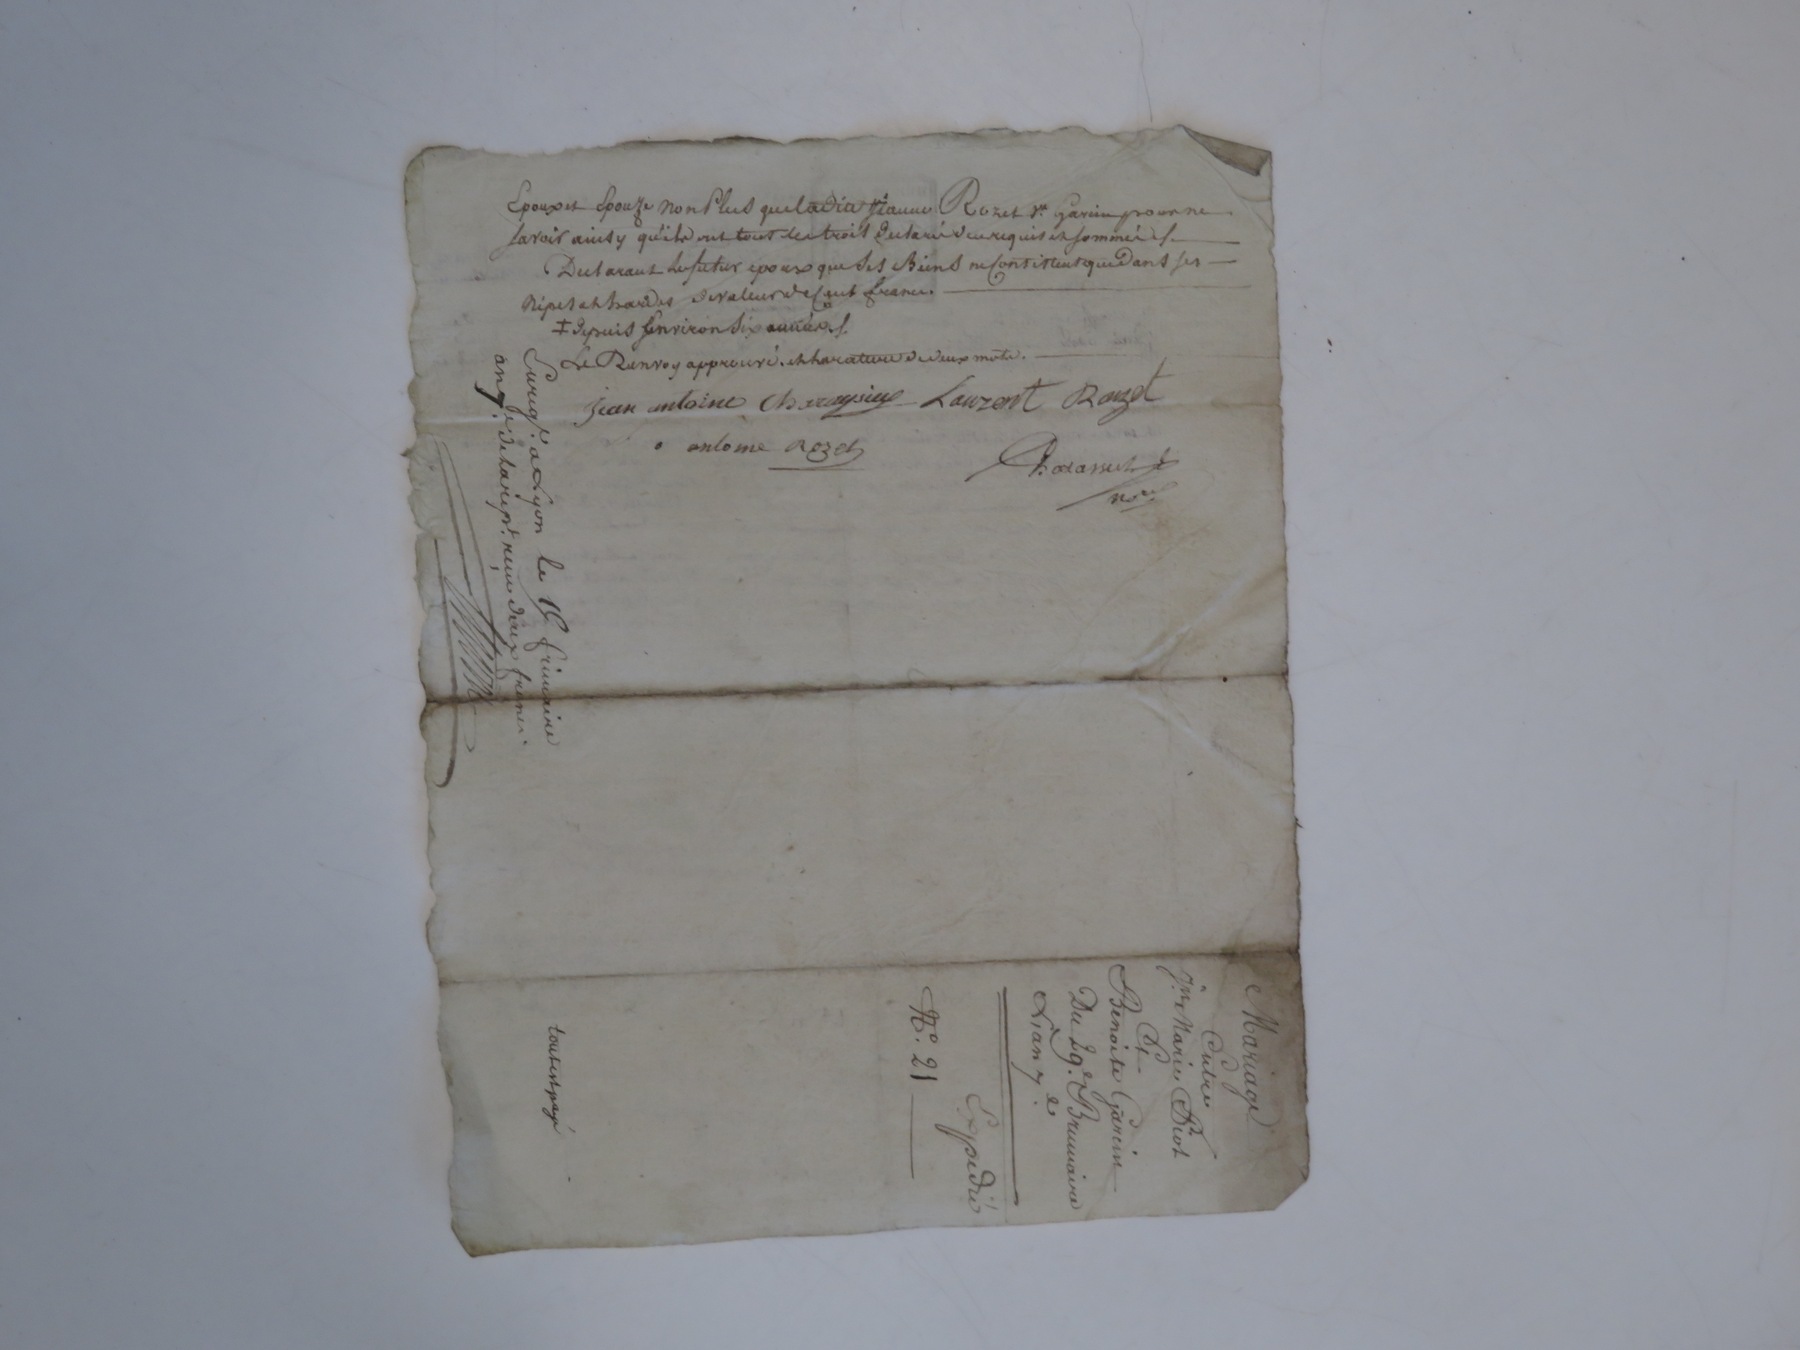 Epoux et Epouze non plus que ladite Jeanne Rozet ve Garcin pour ne
savoir ainsy qu'ils ont tout les trois declaré de ce requis et sommés
Declarant le futur epoux que ses Biens ne Consistent que dans ses
nipes et hardes de valeur de Cent francs.
‡ depuis Environ six années
Le Renvoy approuvé et la rature de deux mots.
jean antoine Laurent Rozet
antome Rozet
nore
Enregt. a Lyon le 16 frimaire
an 7. reçu deux francs.
Mariage
Entre
Jn. Marie Piot
Et
Benoite Garcin
Du 29e. Brumaire
L'an 7e.
Expedié
No. 21
tout est payé